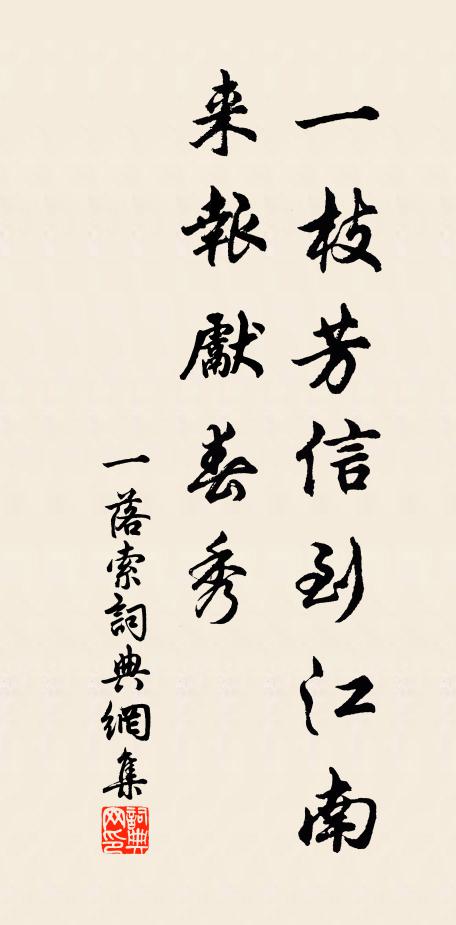 一枝芳信到江南
来報獻春秀
一落索詞典網集
詞典
网印